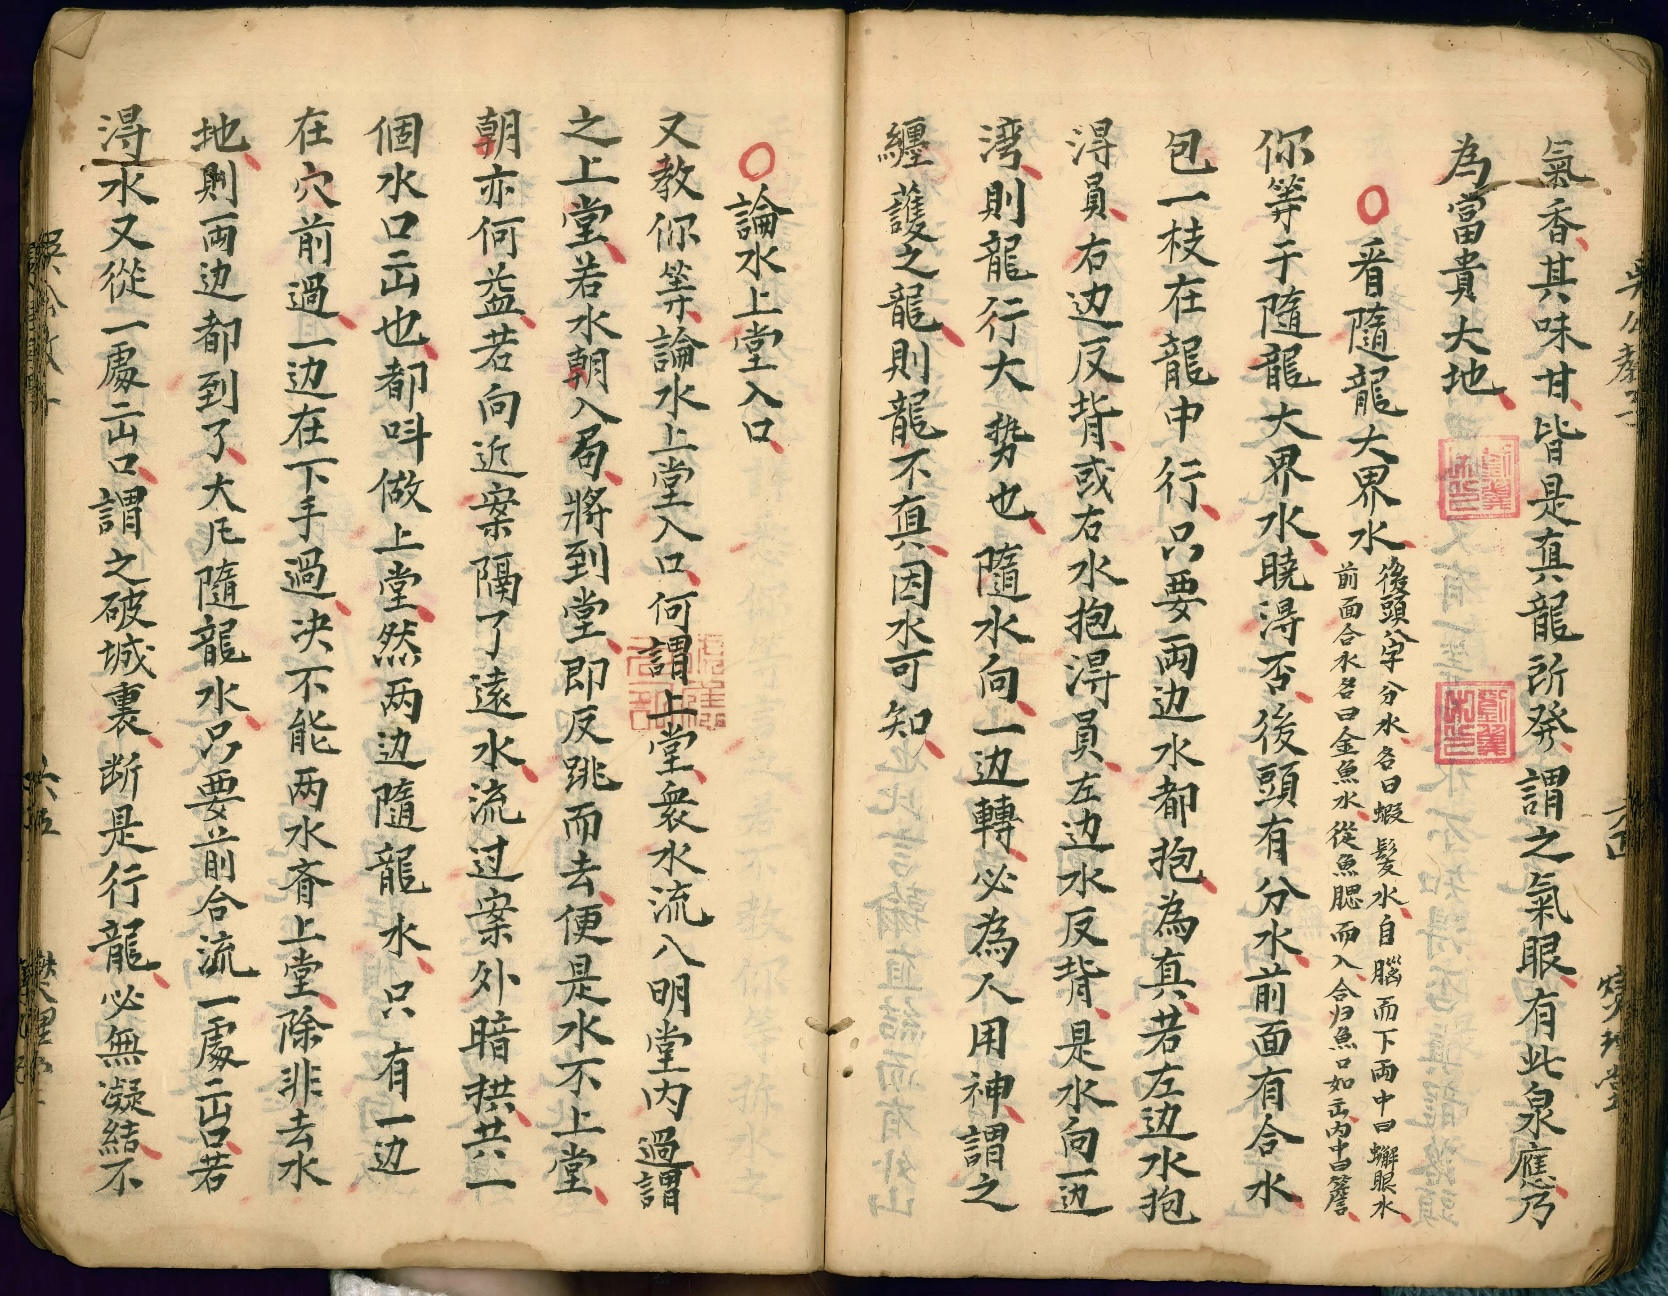 氣香其味甘皆是真龍所發謂之氣眼有此泉應乃
為富貴大地
○看隨龍大界水
後頭分字分水名曰蝦鬚水自腦而下両中曰蠏眼水
前面合水名曰金魚水從魚腮而入合归魚口如
你等于隨龍大界水曉淂否後頭有分水前面有合水
包一枝在龍中行只要両边水都抱為真若左边水抱
淂員右边反背或右水抱淂員左边水反背是水向一边
湾則龍行大势也隨水向一边轉必為人用神謂之
纏護之龍則龍不真因水可知
○論水上堂入口
又教你等論水上堂入口何謂上堂衆水流入明堂内過謂
之上堂若水朝入局將到堂即反跳而去便是水不上堂
朝亦何益若向近案隔了遠水流过案外暗拱共一
個水口出也都呌做上堂然两边隨龍水只有一边
在穴前過一边在下手過决不能两水斉上堂除非去水
地則両边都到了大凡隨龍水只要前合流一處出口若
淂水又從一處出口謂之破城裏断是行龍必無凝結不